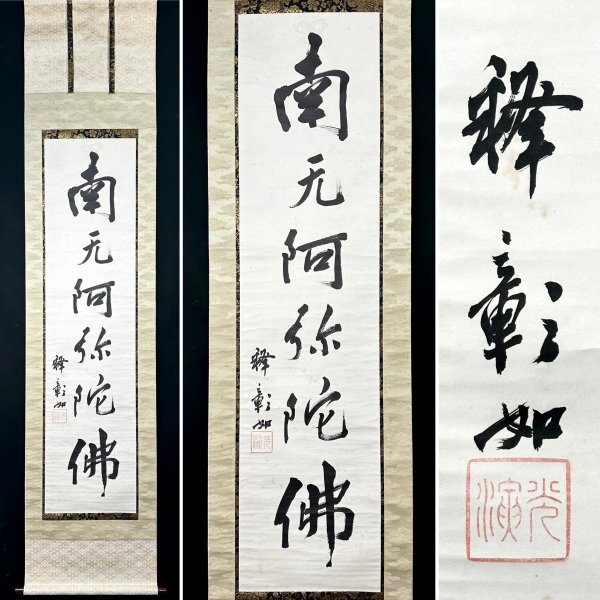 南无阿弥陀佛
釋彰如
光演
南无阿弥陀佛
釋彰如
光演
釋彰如
光演